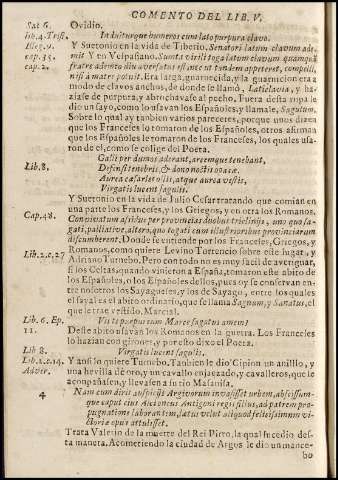 COMENTO DEL LIB. V.
Sat 6. Ovidio.
lib. 4. Trist. Inditusque humeros cum lato purpura clavo.
Eleg. 9. Y Suetonio en la vida de Tiberio. Senatori latum clavum adé-
cap. 35. mit Y en Vespasiano. Sumta virili toga latum clavum quamquã
cap. 2. fratre ademto diu aversatus est ante ut tandem appeteret, compelli,
nisi à mater potuit. Era larga, guarnecida, y la guarnicion era a
modo de clavos anchos, de donde se llamó, Laticlavia, y ha-
ziase de purpura, y abrochavase al pecho. Fuera desta ropa le
dio un sayo, como lo usavan los Españoles, y llamale, Sagulum.
Sobre lo qual ay tanbien varios pareceres, porque unos dizen
que los Franceses lo tomaron de los Españoles, otros afirman
que los Españoles le tomaron de los Franceses, los quales usa-
ron de el, como se colige del Poeta.
Galli per dumos aderant, arcemque tenebant,
Lib. 8. Defensi tenebris, & dono noctis opacæ.
Aurea cæsaries ollis, atque aurea vestis,
Virgatis lucent sagulis.
Y Suetonio en la vida de Julio Cesar tratando que comian en
una parte los Franceses, y los Griegos, y en otra los Romanos.
Cap. 48. Convivatum assidue per provencias duobus tricliniis, uno quo sa-
gati, palliative, altero, quo togati cum illustrioribus provinciarum
discumberent. Donde se entiende por los Franceses, Griegos, y
Lib. 2. c. 27 Romanos, como quiere Levino Torrencio sobre este lugar, y
Adriano Turnebo. Pero con todo no es muy facil de averiguar,
si los Celtas, quando vinieron a España, tomaron este abito de
los Españoles, o los Españoles dellos, pues oy se conservan en-
tre nosotros los Sayagueses, y los de Sayago, entre los quales
el sayal es el abito ordinario, que se llama Sagnum, y Lanatus, el
que le trae vestido. Marcial.
Lib. 6. Ep. Vis te purpureum Marce sagatus amem?
11. Deste abito usavan los Romanos en la guerra. Los Franceses
lo hazian con girones, y por esto dixo el Poeta.
Lib 8. Virgatis lucent sagulis.
Lib. 2. c. 14. Y ansi lo quiere Turnebo. Tanbien le dio Cipion un anilllo, y
Adver. una hevilla de oro, y un cavallo enjaezado, y cavalleros, que le
aconpañasen, y llevasen a su tio Masanisa.
4 Nam cum diris auspiciis Argivorum invasisset urbem, abscissum-
que caput eius Alcioneus Antigoni regis filius, ad patrem pro-
pugnatione laborantem, lætus velut aliquod felicissimum vic-
toriæ opus attulisset.
Trata Valerio de la muerte del Rei Pirro, la qual sucedio des-
ta manera. Acometiendo la ciudad de Argos le dio un mance-
bo